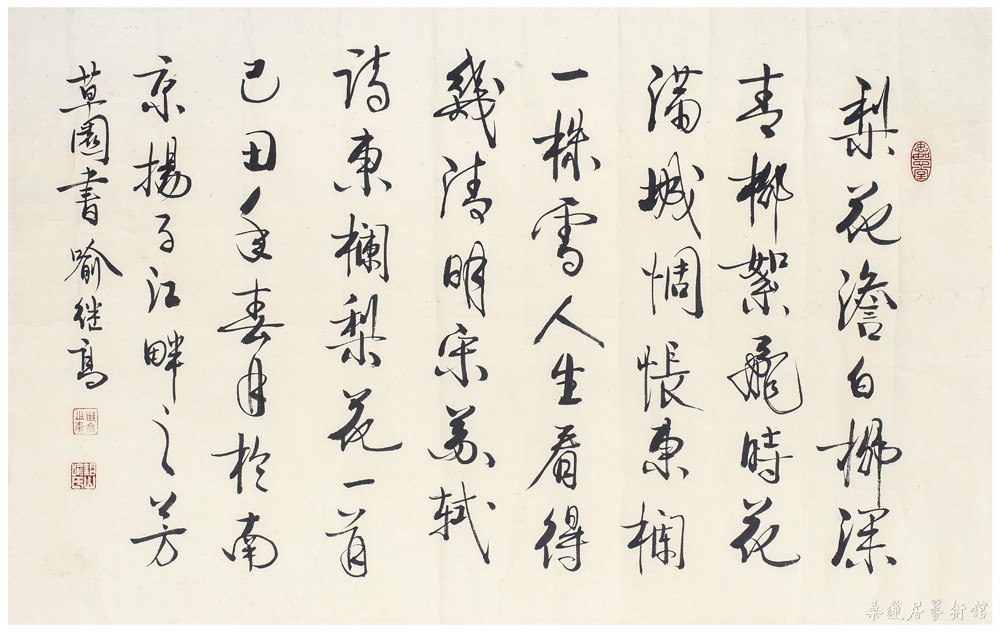 梨花澹白柳深
青柳絮飛時花
滿城惆悵東欄
一株雪人生看得
幾清明宋苏軾
詩東欄梨花一首
己丑年春月於南
京揚子江畔之芳
草園書喻继高
桑蓮居藝術館